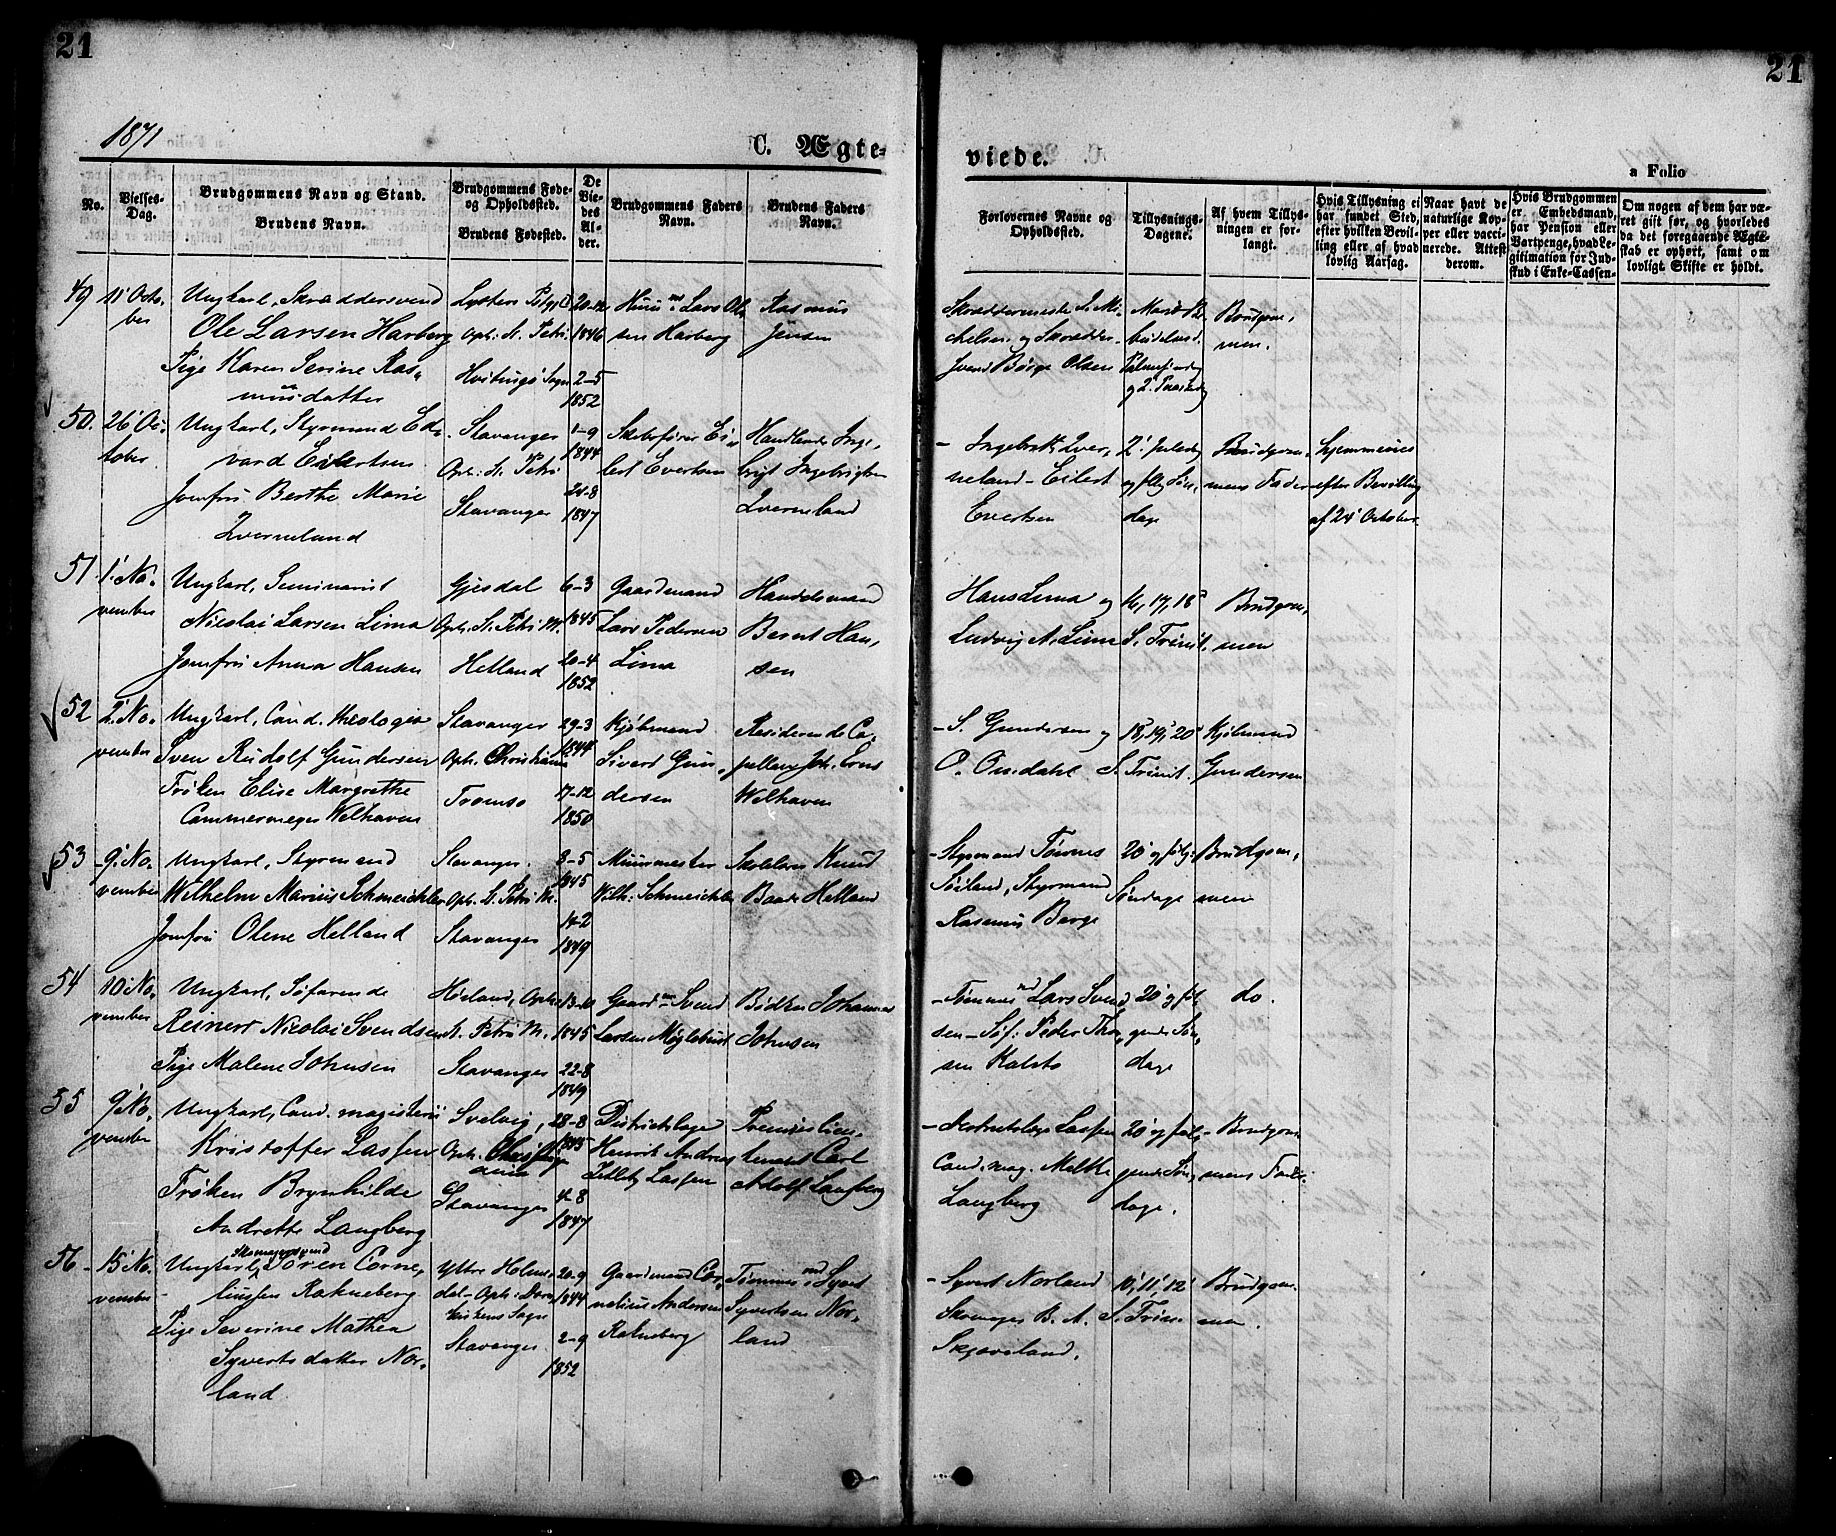 21
21
1871
C. Ægte-
viede.
a Folio
No.
Vielses-
Dag.
Brudgommens Navn og Stand.
Brudens Navn.
Brudgommens Føde-
og Opholdssted.
Brudens Fødested.
De
Vie-
des
Al-
der.
Brudgommens Faders
Navn.
Brudens Faders
Navn.
Forlovernes Navne og
Opholdssted.
Tillysnings-
Dagene.
Af hvem Tillys-
ningen er for-
langt.
Hvis Tillysning ei
har fundet Sted,
efter hvilken Bevil-
ling eller af hvad
lovlig Aarsag.
Naar havt de
naturlige Kop-
per eller vacci-
nerede. Attest
derom.
Hvis Brudgommen
er Embedsmand,
har Pension eller
Vartpenge, hvad Le-
gitimation for Ind-
skud i Enke-Cassen.
Om nogen af dem har væ-
ret gift før, og hvorledes
da det foregaaende Ægte-
skab er ophørt, samt om
lovligt Skifte er holdt.
49
11 Octo-
ber
Ungkarl, Skræddersvend
Ole Larsen Harberg
Pige Karen Serine Ras-
musdatter
Oph: St. Petri
Hvitingsø Sogn
20-12
1846
2-5
1852
Huusmd Lars Ol-
sen Harberg
Rasmus
Jensen
Skræddermester L. Mi-
chelsen og Skrædder-
svend Børge Olsen
Palmesøndag
og 2' Paaskedag
Brudgom-
men.
50.
26' Oc-
tober
Ungkarl, Styrmand Ed-
vard Eilertsen
Jomfru Berthe Marie
Qverneland
Stavanger
Oph: St. Petri
Stavanger
1-9
1844
21-8
1847
Skibsfører Ei-
lert Evertsen
Handlende Inge-
brigt Ingebrigtsen
Qverneland
- Ingebrikt Qver-
neland - Eilert
Evertsen
2' Juledag
og flg Søn-
dage
Brudgom-
mens Fader
hjemmevies
efter Bevilling
af 24' October
51
1' No-
vember
Ungkarl, Seminarist
Nicolai Larsen Lima
Jomfru Anna Hansen
Gjesdal
Oph. St. Petri M.
Helland
6-3
1845
20-4
1852
Gaardmand
Lars Pedersen
Lima
Handelsmand
Bernt Han-
sen
Hans Lima og
Ludvig A. Lima
16, 17, 18'
S. Trinit.
Brudgom-
men
52
2' No-
vember
Ungkarl, Cand. theologia
Sven Rudolf Gundersen
Frøken Elise Margrethe
Cammermeyer Welhaven
Stavanger
Oph. Christiania
Tromsø
29-3
1844
17-12
1850
Kjøbmand
Sivert Gun-
dersen
Residerende Ca-
pellan Joh. Ernst
Welhaven
- S. Gundersen og
O. Omdahl
18', 19', 20'
S. Trinit.
Kjøbmand
Gundersen
53
9' No-
vember
Ungkarl, Styrmand
Wilhelm Marius Schmeichler
Jomfru Olene Helland
Stavanger.
Oph. St. Petri M.
Stavanger
8-5
1845
14-2
1849
Muurmester
Wilh: Schmeichler
Skoleler Knud
Baade Helland
- Styrmand Tønnes
Søiland, Styrmand
Rasmus Berge
20' og følg:
Søndage
Brudgom-
men
54
10' No-
vember
Ungkarl, Søfarende
Reinert Nicolai Svendsen
Pige Malene Johnsen
Høiland, Oph:
St. Petri M.
Stavanger
13-10
1845
22-8
1849
Gaardmd Svend
Larsen Møglebust
Bødker Johannes
Johnsen
- Tømmermd Lars Svend-
sen - Søf: Peder Thor-
sen Kalstø
20' og føl-
gende Søn-
dage
do.
55
9' No-
vember
Ungkarl, Cand. magisterii
Kristoffer Lassen
Frøken Brynhilde
Andrette Langberg
Svelvig,
Oph. Christi-
ania
Stavanger
28-8
1845
4-8
1847
Districtslæge
Henrik Andreas
Zetlitz Lassen
Premierlieu-
tenant Carl
Adolf Langberg
- Districtslæge Lassen
Cand. mag. Meltke
Langberg
20' og føl-
gende Søn-
dage.
Brudgom-
mens Fader.
56
15' No-
vember
Skomagersvend
Ungkarl, Søren Corne-
liussen Rakneberg
Pige Severine Mathea
Syvertsdatter Nor-
land
Yttre Holme-
dal - Oph: Dom-
kirkens Sogn
Stavanger
20-9
1844
2-9
1852
Gaardmand Cor-
nelius Andersen
Rakneberg
Tømmermd Syvert
Syvertsen Nor-
land
- Syvert Norland
Skomager B. A.
Skjæveland.
10', 11', 12'
S. Trin
Brudgom-
men.